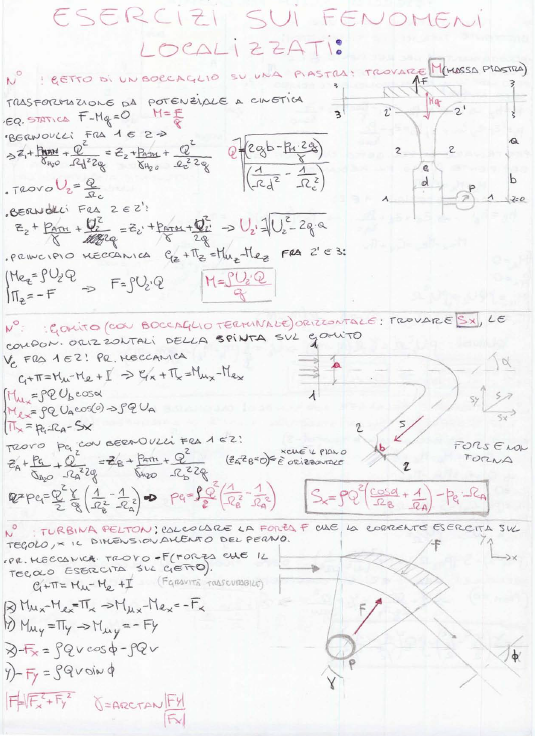 ESERCIZI SUI FENOMENI
LOCALIZZATI:
N° : GETTO DI UN BOCCAGLIO SU UNA PIASTRA: TROVARE M (MASSA PIASTRA)
TRASFORMAZIONE DA POTENZIALE A CINETICA
·EQ. STATICA F-Mg=0 M=F/g
·BERNOULLI FRA 1 E 2→
→ z₁+ pm+ATM/γH₂O + Q²/Ωd²2g = z₂+ pATM/γH₂O + Q²/Ωc²2g
·TROVO U₂=Q/Ωc
·BERNOULLI FRA 2 E 2':
z₂+ pATM/γ + U₂²/2g = z₂'+ pATM/γ + U₂'²/2g → U₂'=√U₂²-2g·a
·PRINCIPIO MECCANICA Gz+Πz=Muz-Mez FRA 2' E 3:
Mez=ρU₂'Q
Πz=-F
⇒ F=ρU₂'·Q
M=ρU₂'·Q/g
F
Mg
3
3
2'
2'
2
2
c
d
P
1
1
z=0
a
b
N°: :GOMITO (CON BOCCAGLIO TERMINALE) ORIZZONTALE: TROVARE Sx, LE
COMPON. ORIZZONTALI DELLA SPINTA SUL GOMITO
Vc FRA 1 E 2! PR. MECCANICA
G+Π=Mu-Me+I → Gx+Πx=Mux-Mex
Mux=ρQUb cosα
Mex=ρQUA cos(0)→ρQUA
Πx=pG·ΩA-Sx
TROVO pG CON BERNOULLI FRA 1 E 2:
zA+ pG/γH₂O + Q²/ΩA²2g = zB+ pATM/γH₂O + Q²/Ωb²2g (zA zB=0)= XCHÈ IL PIANO È ORIZZONTALE
pG=Q²/2 γ/g (1/ΩB² - 1/ΩA²) ⇒ pG=ρQ²/2 (1/ΩB² - 1/ΩA²)
Sx=ρQ²(cosα/ΩB + 1/ΩA) - pG·ΩA
1
1
a
α
S
2
b
2
Sy
S
Sx
FORSE NON
TORNA
N° TURBINA PELTON: CALCOLARE LA FORZA F CHE LA CORRENTE ESERCITA SUL
TEGOLO, X IL DIMENSIONAMENTO DEL PERNO.
·PR. MECCANICA: TROVO -F(FORZA CHE IL
TEGOLO ESERCITA SUL GETTO).
G+Π=Mu-Me+I (FGRAVITÀ TRASCURABILE)
X) Mux-Mex=Πx → Mux-Mex=-Fx
Y) Muy=Πy → Muy=-Fy
X)-Fx=ρQv cosϕ-ρQv
Y)-Fy=ρQv sinϕ
|F|=√Fx²+Fy² γ=ARCTAN |Fy|/|Fx|
y
x
-F
F
P
γ
ϕ